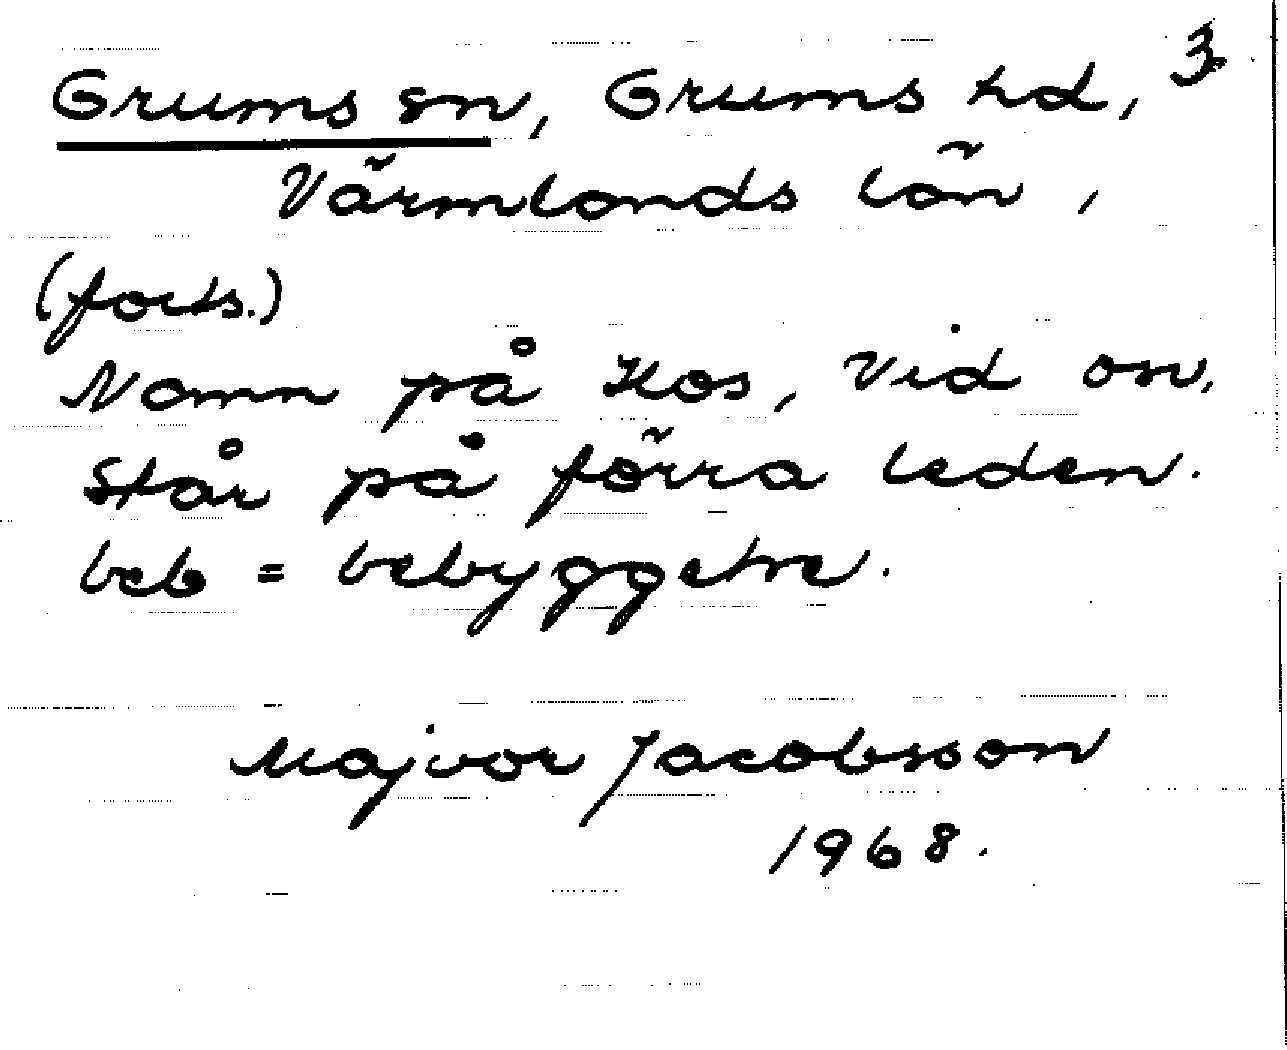 Grums sn, Grums hd, 3.
Värmlands län,
(forts.)
Namn på kos, vid on,
står på förra leden.
beb = bebyggelse.
Majvor Jacobsson
1968.